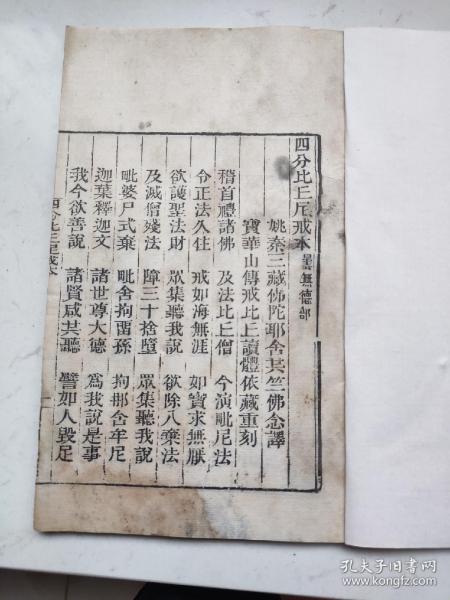 四分比丘尼戒本 曇無德部
姚秦三藏佛陀耶舍共竺佛念譯
寶華山傳戒比丘讀體依藏重刻
稽首禮諸佛 及法比丘僧 今演毗尼法
令正法久住 戒如海無涯 如寶求無厭
欲護聖法財 眾集聽我說 欲除八棄法
及滅僧殘法 障三十捨墮 眾集聽我說
毗婆尸式棄 毗舍拘留孫 拘那含牟尼
迦葉釋迦文 諸世尊大德 為我說是事
我今欲善說 諸賢咸共聽 譬如人毀足
四分比丘尼戒本
一
孔夫子旧书网
www.kongfz.com